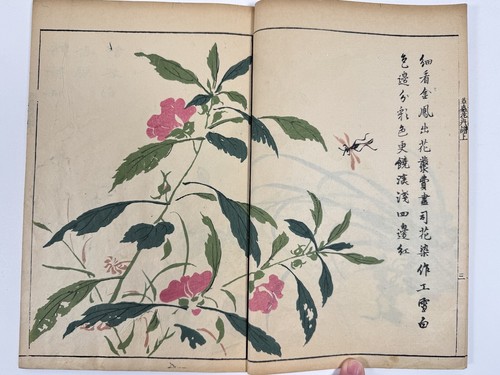 細看金鳳出花叢費盡司花染作工雪白
色邊分彩色更饒深淺四邊紅
花卉譜上
三